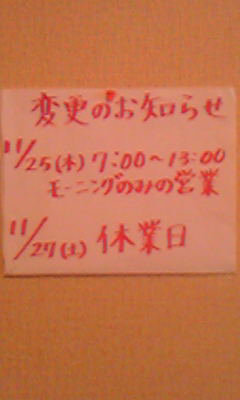 変更のお知らせ
11/25(木) 7:00～13:00
モーニングのみの営業
11/27(土) 休業日